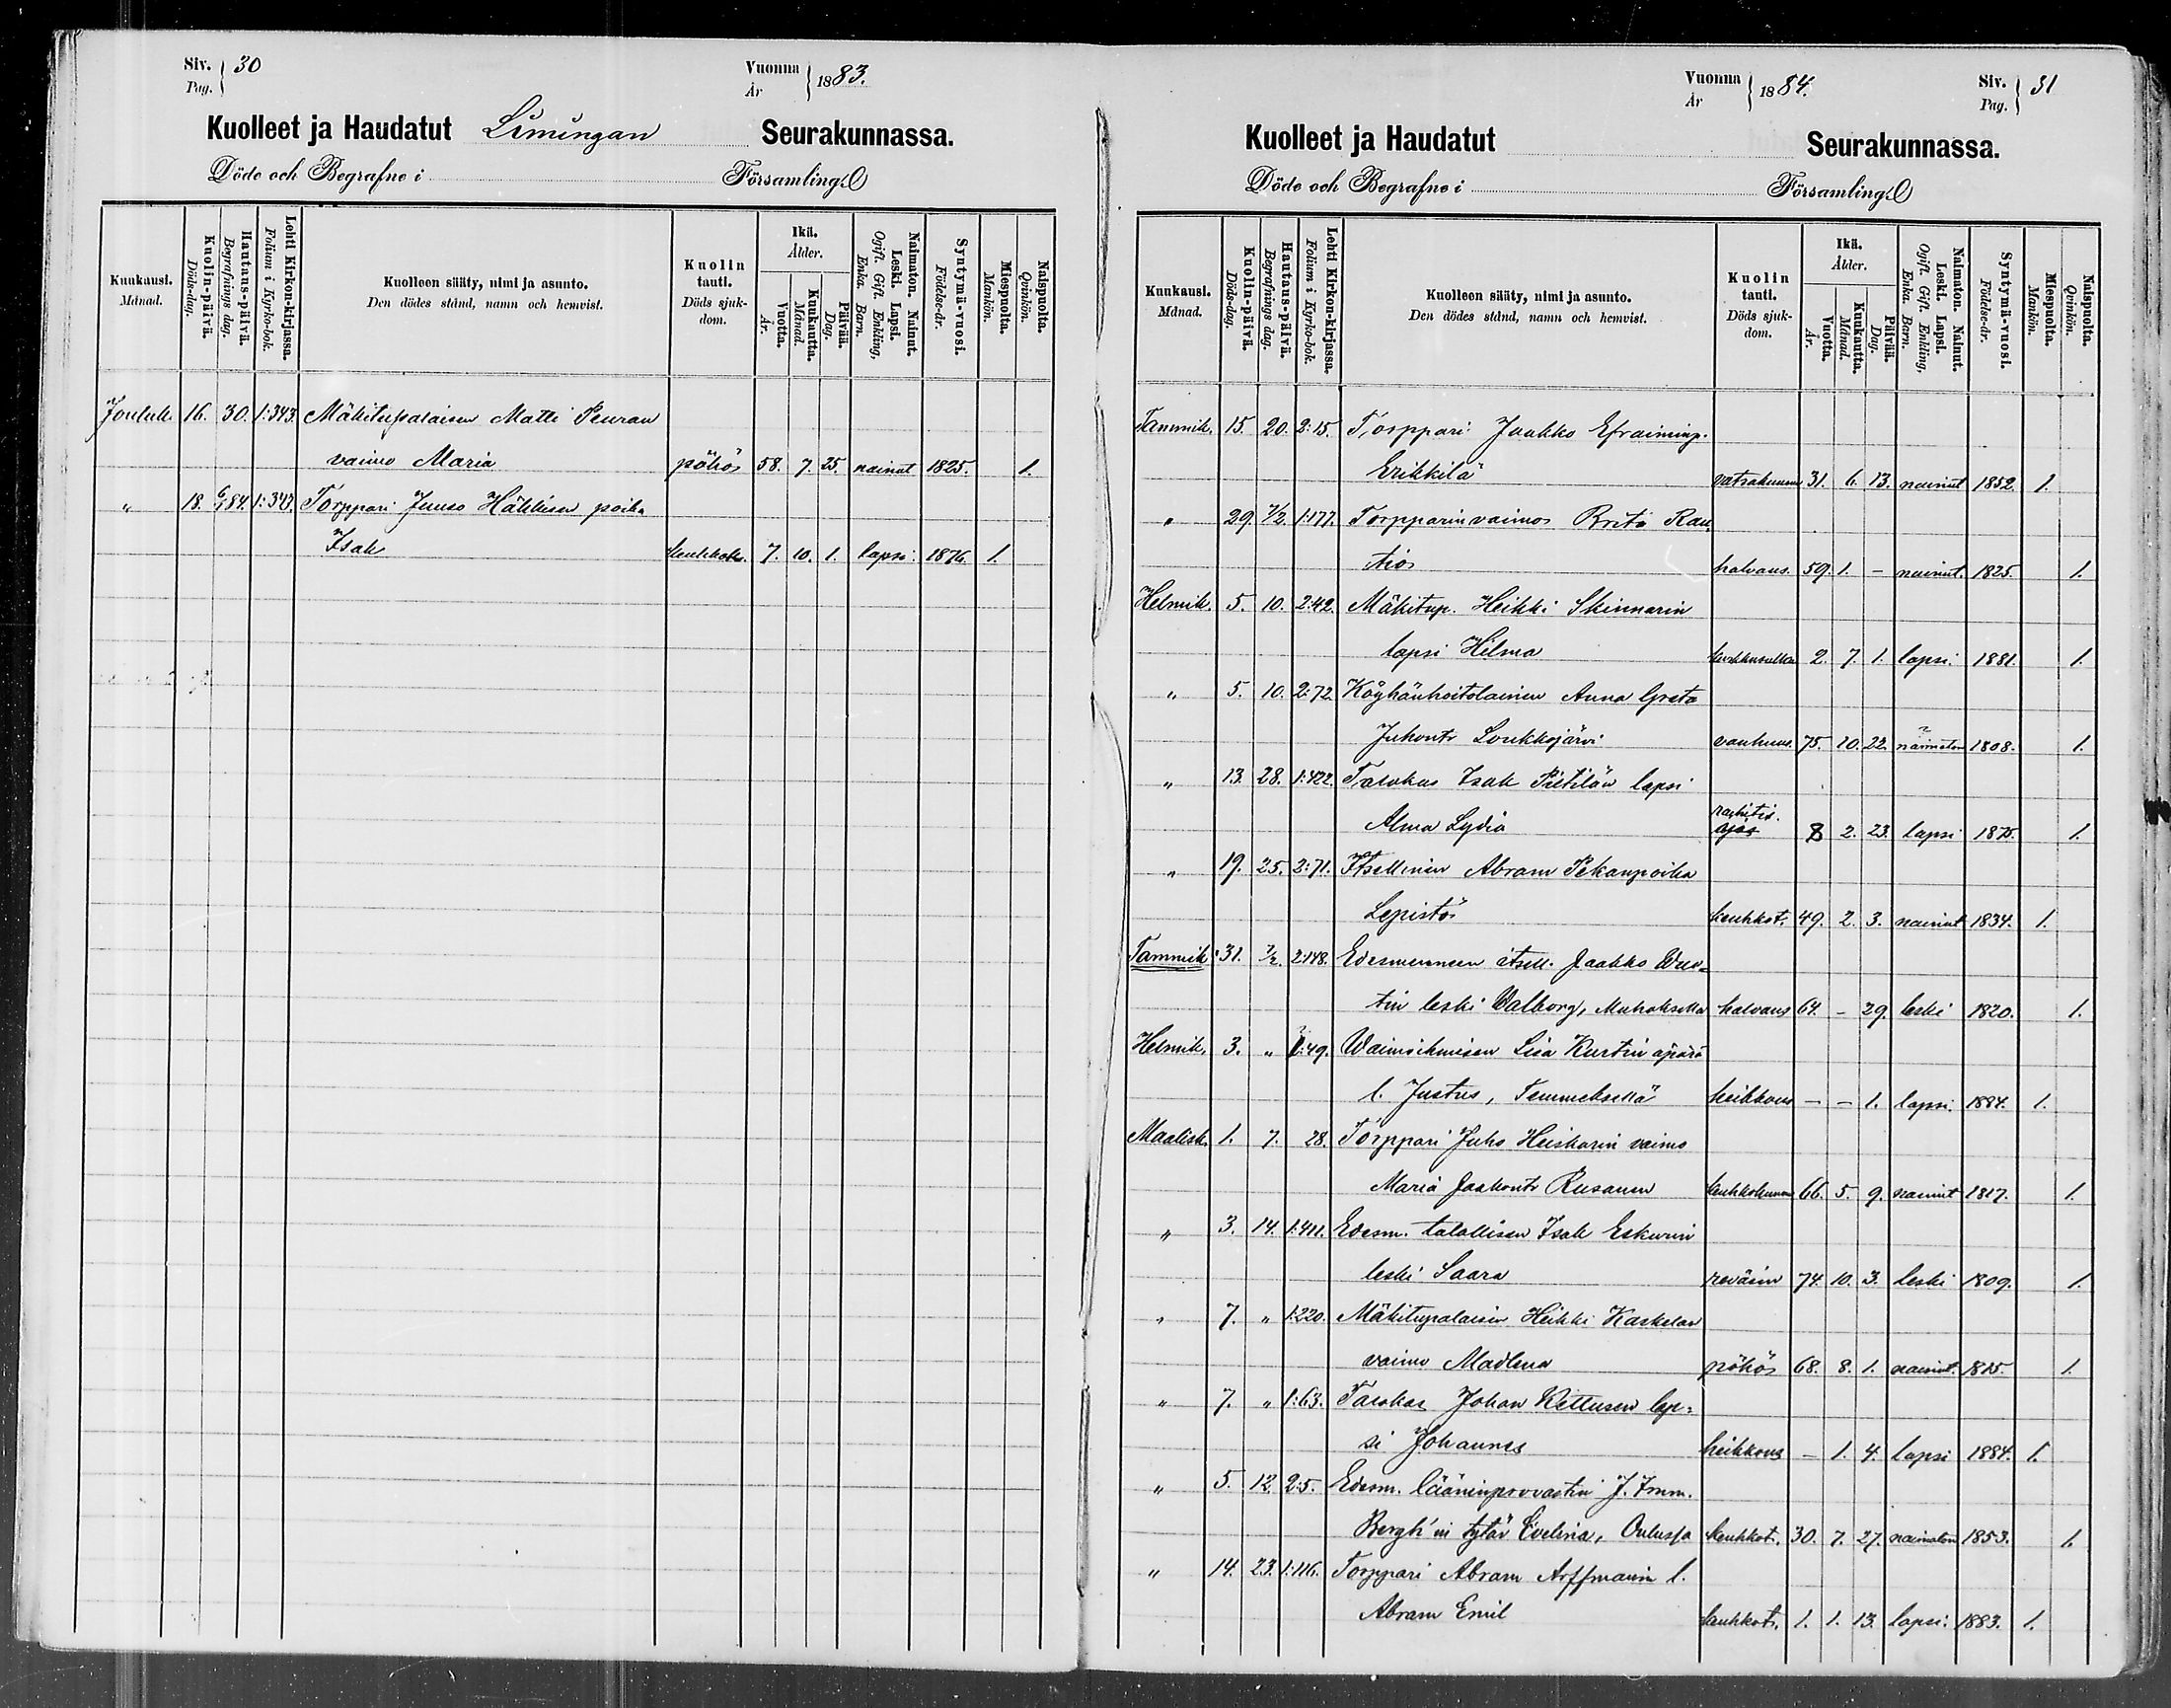 Siv. 30
Pag.
Vuonna 1883.
År
Kuolleet ja Haudatut Limingan Seurakunnassa.
Döde och Begrafne i Församling.
Kuukausi. Månad.
Kuolin-päivä. Döds-dag.
Hautaus-päivä. Begrafnings dag.
Lehti Kirkon-kirjassa. Folium i Kyrko-bok.
Kuolleen sääty, nimi ja asunto. Den dödes stånd, namn och hemvist.
Kuolin tauti. Döds sjuk-dom.
Ikä. Ålder.
Vuotta. År.
Kuukautta. Månad.
Päivää. Dag.
Naimaton. Nainut. Leski. Lapsi. Ogift. Gift. Enkling, Enka. Barn.
Syntymä-vuosi. Födelse-år.
Miespuolta. Mankön.
Naispuolta. Qvinkön.
Jouluk. 16. 30. 1:343. Mäkitupalaisen Matti Peuran
vaimo Maria pöhö 58. 7. 25. nainut 1825. 1.
" 18. 6/1 84. 1:343. Torppari Juuso Häkkisen poika
Isak keuhkok. 7. 10. 1. lapsi 1876. 1.
Vuonna 1884.
År
Siv. 31
Pag.
Kuolleet ja Haudatut Seurakunnassa.
Döde och Begrafne i Församling.
Kuukausi. Månad.
Kuolin-päivä. Döds-dag.
Hautaus-päivä. Begrafnings dag.
Lehti Kirkon-kirjassa. Folium i Kyrko-bok.
Kuolleen sääty, nimi ja asunto. Den dödes stånd, namn och hemvist.
Kuolin tauti. Döds sjuk-dom.
Ikä. Ålder.
Vuotta. År.
Kuukautta. Månad.
Päivää. Dag.
Naimaton. Nainut. Leski. Lapsi. Ogift. Gift. Enkling, Enka. Barn.
Syntymä-vuosi. Födelse-år.
Miespuolta. Mankön.
Naispuolta. Qvinkön.
Tammik. 15. 20. 2:15. Torppari Jaakko Efraiminp.
Erikkilä vatsakuume 31. 6. 13. nainut 1852. 1.
" 29. 7/2. 1:177. Torpparinvaimo Brita Rau-
tio halvaus. 59. 1. - nainut. 1825. 1.
Helmik. 5. 10. 2:42. Mäkitup. Heikki Skinnarin
lapsi Hilma 2. 7. 1. lapsi 1881. 1.
" 5. 10. 2:72. Köyhänhoitolainen Anna Greta
Juhontr Loukkojärvi vanhuus. 75. 10. 22. naimaton 1808. 1.
" 13. 28. 1:422. Talokas Isak Pietilän lapsi
Alma Lydia rachitis. 8 2. 23. lapsi 1875. 1.
" 19. 25. 2:71. Itsellinen Abram Pekanpoika
Lepistö keuhkot. 49. 2. 3. nainut 1834. 1.
Tammik. 31. 7/2. 2:148. Edesmenneen itsell. Jaakko
tin leski Walborg, Muhoksella halvaus 64. - 29. leski 1820. 1.
Helmik. 3. " 1:49. Waimoihmisen Lisa Kurtin äpärä
l. Justus, Temmeksellä heikkous - - 1. lapsi. 1884. 1.
Maalisk. 1. 7. 28. Torppari Juho Heiskarin vaimo
Maria Jaakontr Rusanen keuhkokuume 66. 5. 9. nainut 1817. 1.
" 3. 14. 1:411. Edesm. talollisen Isak Eskurin
leski Saara reväsin 74. 10. 3. leski 1809. 1.
" 7. " 1:220. Mäkitupalaisen Heikki Kaskelan
vaimo Madlena pöhö 68. 8. 1. nainut. 1815. 1.
" 7. " 1:63. Talokas Johan Kettusen lap-
si Johannes heikkous - 1. 4. lapsi 1884. 1.
" 5. 12. 2:5. Edesm. lääninprovastin J. Imm.
Bergh'in tytär Evelina, Oulussa keuhkot. 30. 7. 27. naimaton 1853. 1.
" 14. 23. 1:116. Torppari Abram Arffmanin l.
Abram Emil keuhkot. 1. 1. 13. lapsi. 1883. 1.